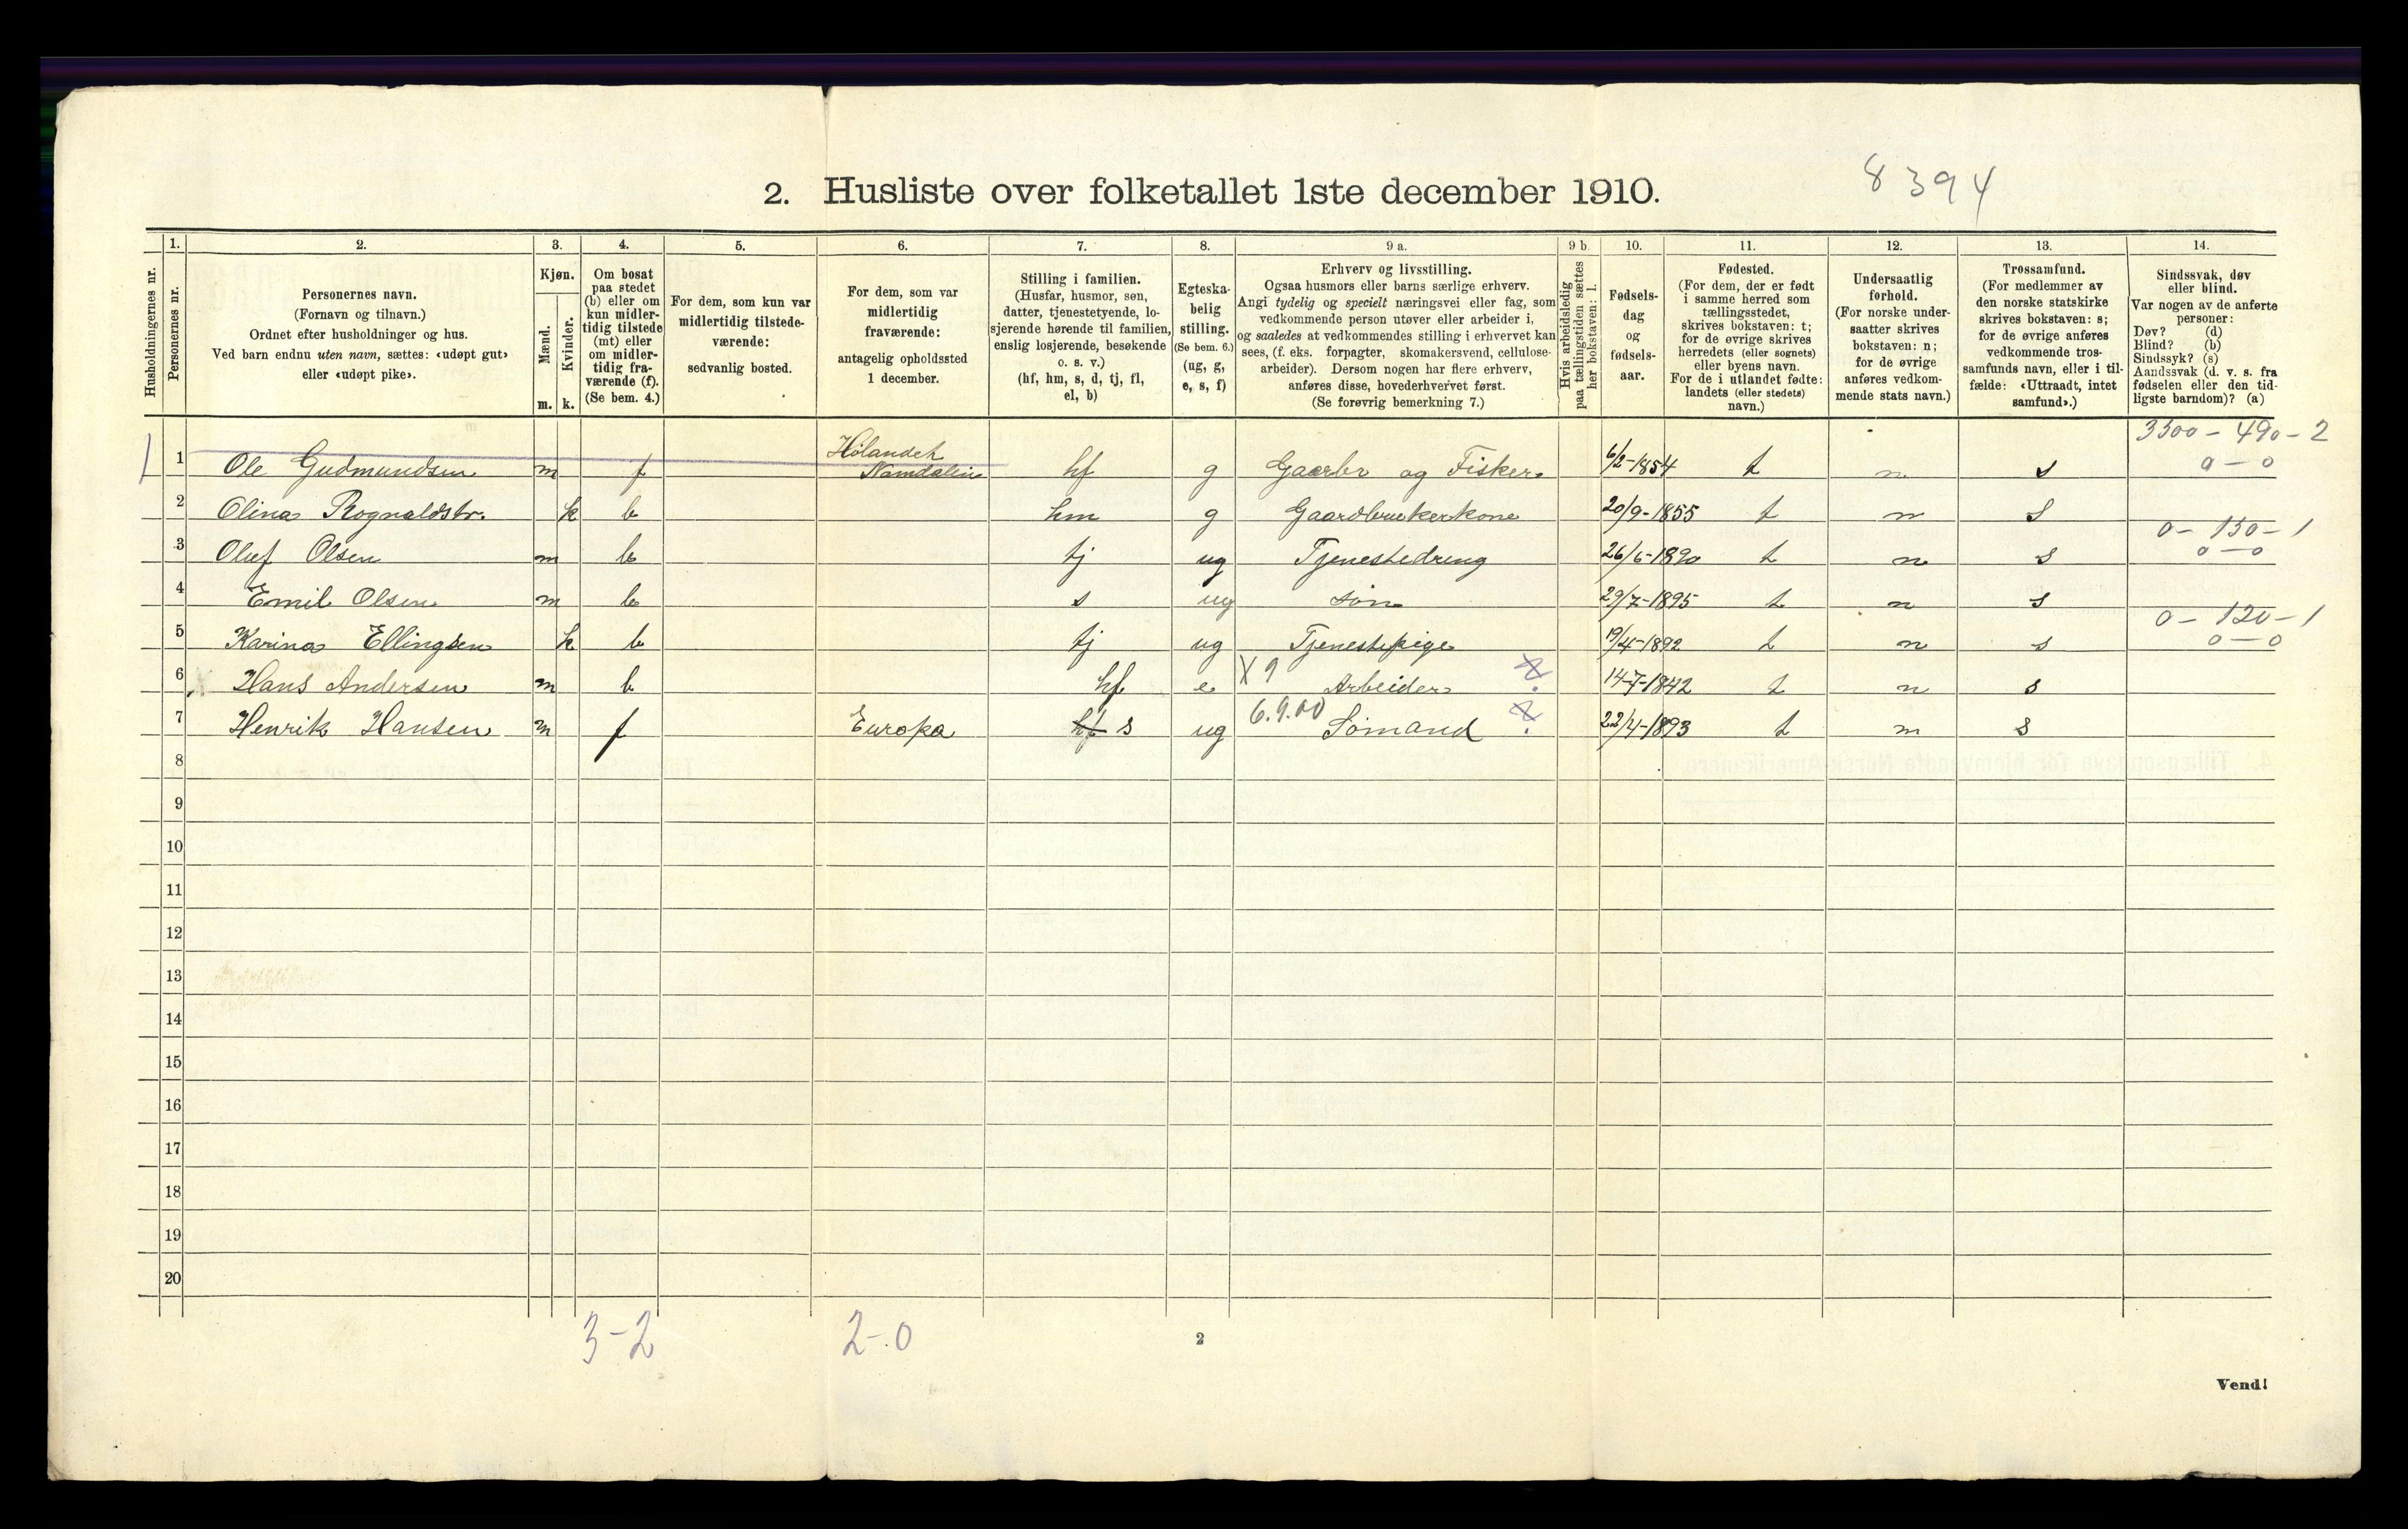 8394
2. Husliste over folketallet 1ste december 1910.
Husholdningernes nr.
1.
Personernes nr.
2.
Personernes navn.
(Fornavn og tilnavn.)
Ordnet efter husholdninger og hus.
Ved barn endnu uten navn, sættes: «udøpt gut»
eller «udøpt pike».
3.
Kjøn.
Mænd.
Kvinder.
m. k.
4.
Om bosat
paa stedet
(b) eller om
kun midler-
tidig tilstede
(mt) eller
om midler-
tidig fra-
værende (f).
(Se bem. 4.)
5.
For dem, som kun var
midlertidig tilstede-
værende:
sedvanlig bosted.
6.
For dem, som var
midlertidig
fraværende:
antagelig opholdssted
1 december.
7.
Stilling i familien.
(Husfar, husmor, søn,
datter, tjenestetyende, lo-
sjerende hørende til familien,
enslig losjerende, besøkende
o. s. v.)
(hf, hm, s, d, tj, fl,
el, b)
8.
Egteska-
belig
stilling.
(Se bem. 6.)
(ug, g,
e, s, f)
9 a.
Erhverv og livsstilling.
Ogsaa husmors eller barns særlige erhverv.
Angi tydelig og specielt næringsvei eller fag, som
vedkommende person utøver eller arbeider i,
og saaledes at vedkommendes stilling i erhvervet kan
sees, (f. eks. forpagter, skomakersvend, cellulose-
arbeider). Dersom nogen har flere erhverv,
anføres disse, hovederhvervet først.
(Se forøvrig bemerkning 7.)
9 b.
Hvis arbeidsledig
paa tællingstiden sættes
her bokstaven: l.
10.
Fødsels-
dag
og
fødsels-
aar.
11.
Fødested.
(For dem, der er født
i samme herred som
tællingsstedet,
skrives bokstaven: t;
for de øvrige skrives
herredets (eller sognets)
eller byens navn.
For de i utlandet fødte:
landets (eller stedets)
navn.)
12.
Undersaatlig
forhold.
(For norske under-
saatter skrives
bokstaven: n;
for de øvrige
anføres vedkom-
mende stats navn.)
13.
Trossamfund.
(For medlemmer av
den norske statskirke
skrives bokstaven: s;
for de øvrige anføres
vedkommende tros-
samfunds navn, eller i til-
fælde: «Uttraadt, intet
samfund».)
14.
Sindssvak, døv
eller blind.
Var nogen av de anførte
personer:
Døv? (d)
Blind? (b)
Sindssyk? (s)
Aandssvak (d. v. s. fra
fødselen eller den tid-
ligste barndom)? (a)
3300 – 490 – 2
1 Ole Gudmundsen m f Namdalen hf g Gaarbr og Fisker 6/2-1854 t n s 0 – 0
2 Olina Rognaldstr. k b hm g Gaardbrukerkone 20/9-1855 t n s
0 – 150 – 1
3 Oluf Olsen m b tj ug Tjenestedreng 26/6-1890 t n s 0 – 0
4 Emil Olsen m b s ug søn 29/7-1895 t n s
0 – 120 – 1
5 Karina Ellingsen k b tj ug Tjenestepige 19/4-1892 t n s 0 – 0
6 X Hans Andersen m b hf e X 9 Arbeider 14-7-1842 t n s
7 Henrik Hansen m f Europa hf s ug 6.9.00 Sømand 22/4-1893 t n s
8
9
10
11
12
13
14
15
16
17
18
19
20
3-2 2-0
2
Vend!